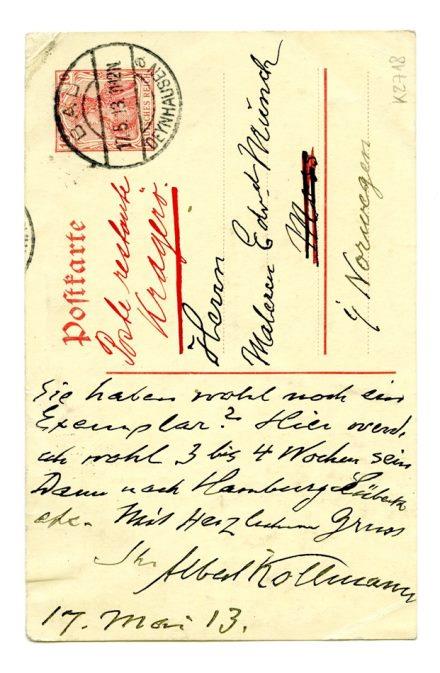 BAD
17.5.13. 11-12N
a
OEYNHAUSEN
K2718
Postkarte
Poste restante
Kragerö.
Herrn
Maleren Edvd Munch
Moss
i/ Norwegen
Sie haben wohl noch ein
Exemplar? Hier werde
ich wohl 3 bis 4 Wochen sein
Dann nach Hamburg Lübeck
etc. Mit Herzlichem Gruss
Ihr Albert Kollmann
17. Mai 13.